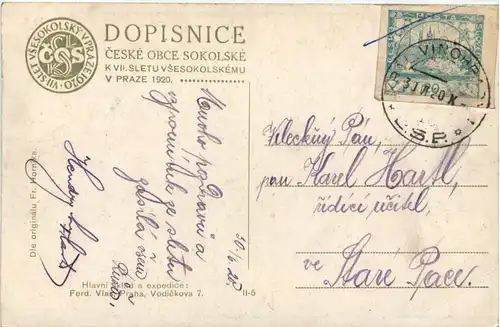 VII. SLET VŠESOKOLSKÝ V PRAZE 1920
ČOS
DOPISNICE
ČESKÉ OBCE SOKOLSKÉ
K VII. SLETU VŠESOKOLSKÉMU
V PRAZE 1920.
Mnoho pozdravů a
vzpomínek ze sletu
zasílá
30/6 20.
Dle originálu Fr. Horníka.
Hlavní sklad a expedice:
Ferd. Praha, Vodičkova 7.
II-5
VINOHR
Č.S.P.
Velectěný Pán,
pan Karel Hartl,
řídící učitel,
ve
Staré Pace.